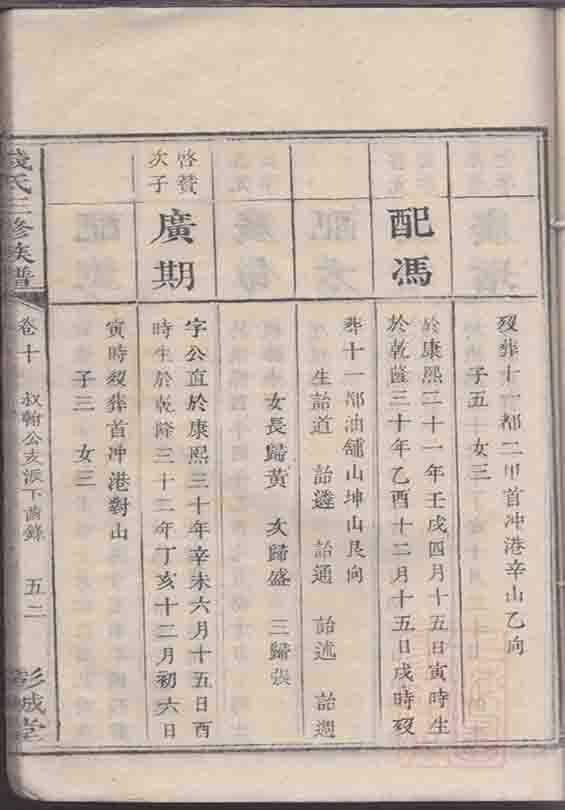 歿葬十一都二甲首冲港辛山乙向
子五 女三
配馮
於康熙二十一年壬戌四月十五日寅時生
於乾隆三十年乙酉十二月十五日戌時歿
葬十一都油舖山坤山艮向
生詒道 詒遴 詒通 詒述 詒週
女長歸黃 次歸盛 三歸張
啓賛
次子
廣期
字公直於康熙三十年辛未六月十五日酉
時生於乾隆三十二年丁亥十二月初六日
寅時歿葬首冲港對山
子三 女三
錢氏三修族譜
卷十 叔翰公亥派下齒錄 五二
彭城堂